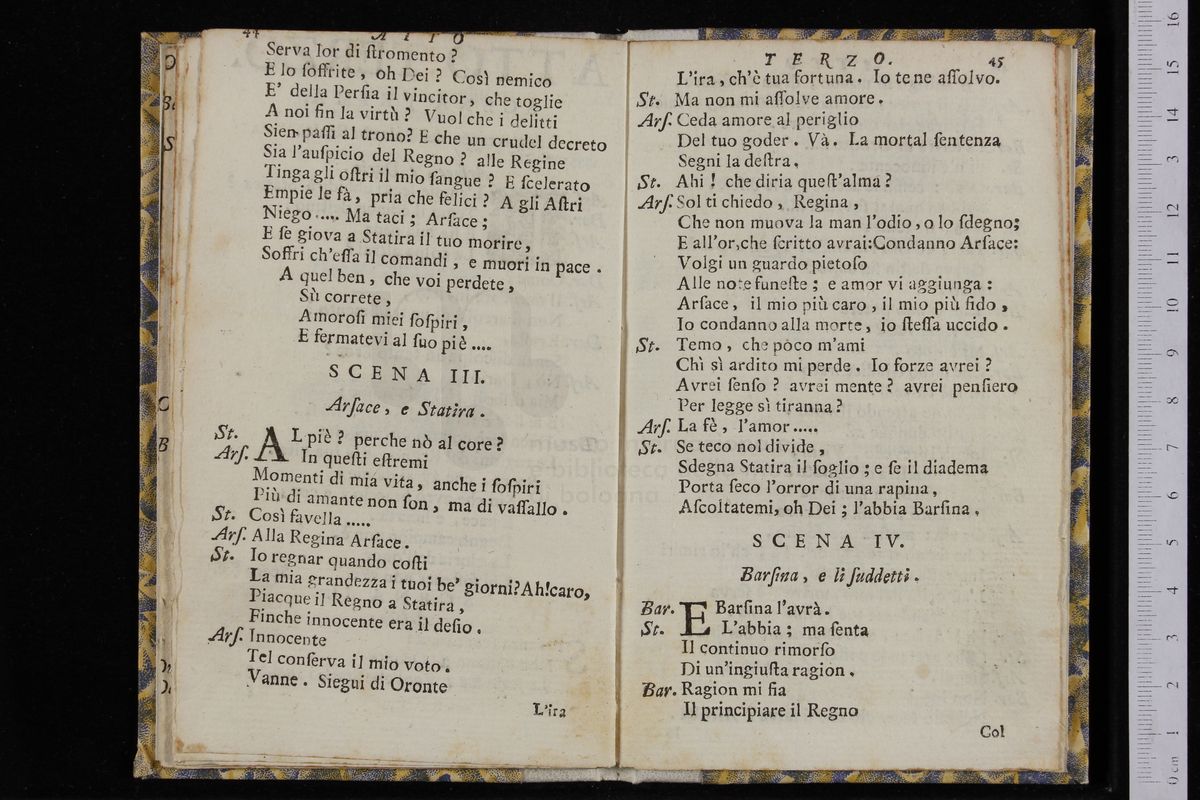 44 ATTO
Serva lor di ſtromento ?
E lo ſoffrite , oh Dei ? Così nemico
E' della Perſia il vincitor , che toglie
A noi fin la virtù ? Vuol che i delitti
Sien paſſi al trono? E che un crudel decreto
Sia l'auſpicio del Regno ? alle Regine
Tinga gli oſtri il mio ſangue ? E ſcelerato
Empie le fà , pria che felici ? A gli Aſtri
Niego ..... Ma taci ; Arſace ;
E ſe giova a Statira il tuo morire ,
Soffri ch'eſſa il comandi , e muori in pace .
A quel ben , che voi perdete ,
Sù correte ,
Amoroſi miei ſoſpiri ,
E fermatevi al ſuo piè ....
SCENA III.
Arſace , e Statira .
St. AL piè ? perche nò al core ?
Arſ. In queſti eſtremi
Momenti di mia vita , anche i ſoſpiri
Più di amante non ſon , ma di vaſſallo .
St. Così favella .....
Arſ. Alla Regina Arſace .
St. Io regnar quando coſti
La mia grandezza i tuoi be' giorni?Ah!caro,
Piacque il Regno a Statira ,
Finche innocente era il deſio .
Arſ. Innocente
Tel conſerva il mio voto .
Vanne . Siegui di Oronte
L'ira
TERZO. 45
L'ira , ch'è tua fortuna . Io te ne aſſolvo.
St. Ma non mi aſſolve amore .
Arſ. Ceda amore al periglio
Del tuo goder . Và . La mortal ſentenza
Segni la deſtra .
St. Ahi ! che diria queſt'alma ?
Arſ. Sol ti chiedo , Regina ,
Che non muova la man l'odio , o lo ſdegno;
E all'or,che ſcritto avrai:Condanno Arſace:
Volgi un guardo pietoſo
Alle note funeſte ; e amor vi aggiunga :
Arſace , il mio più caro , il mio più fido ,
Io condanno alla morte , io ſteſſa uccido .
St. Temo , che pòco m'ami
Chì sì ardito mi perde . Io forze avrei ?
Avrei ſenſo ? avrei mente ? avrei penſiero
Per legge sì tiranna ?
Arſ. La fè , l'amor .....
St. Se teco nol divide ,
Sdegna Statira il ſoglio ; e ſe il diadema
Porta ſeco l'orror di una rapina ,
Aſcoltatemi, oh Dei ; l'abbia Barſina .
SCENA IV.
Barſina , e li ſuddetti .
Bar. E Barſina l'avrà .
St. L'abbia ; ma ſenta
Il continuo rimorſo
Di un'ingiuſta ragion .
Bar. Ragion mi ſia
Il principiare il Regno
Col